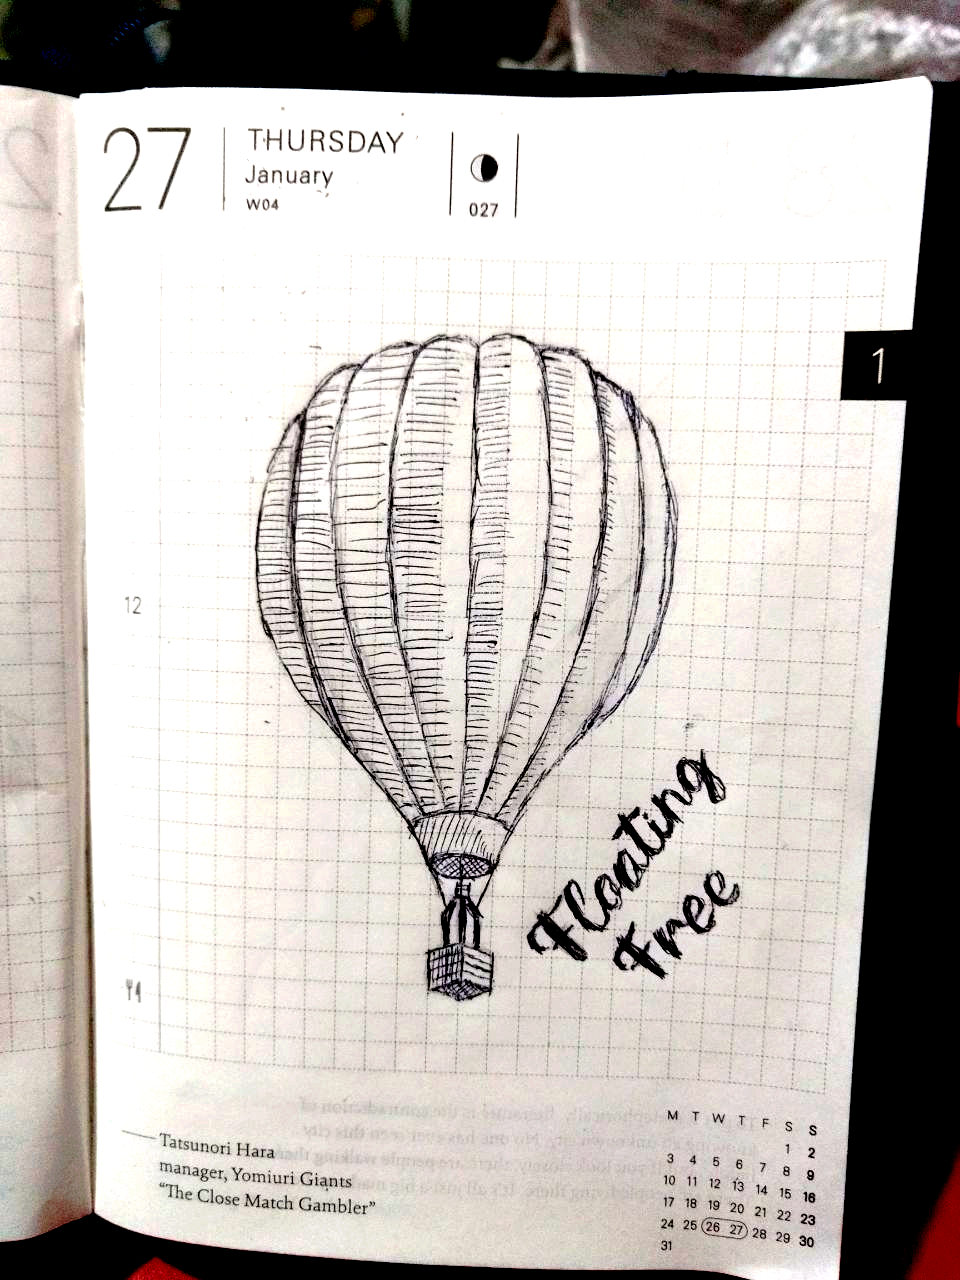 27
THURSDAY
January
W04
027
1
12
Floating
Free
Tatsunori Hara
manager, Yomiuri Giants
“The Close Match Gambler”
M T W T F S S
1 2
3 4 5 6 7 8 9
10 11 12 13 14 15 16
17 18 19 20 21 22 23
24 25 26 27 28 29 30
31